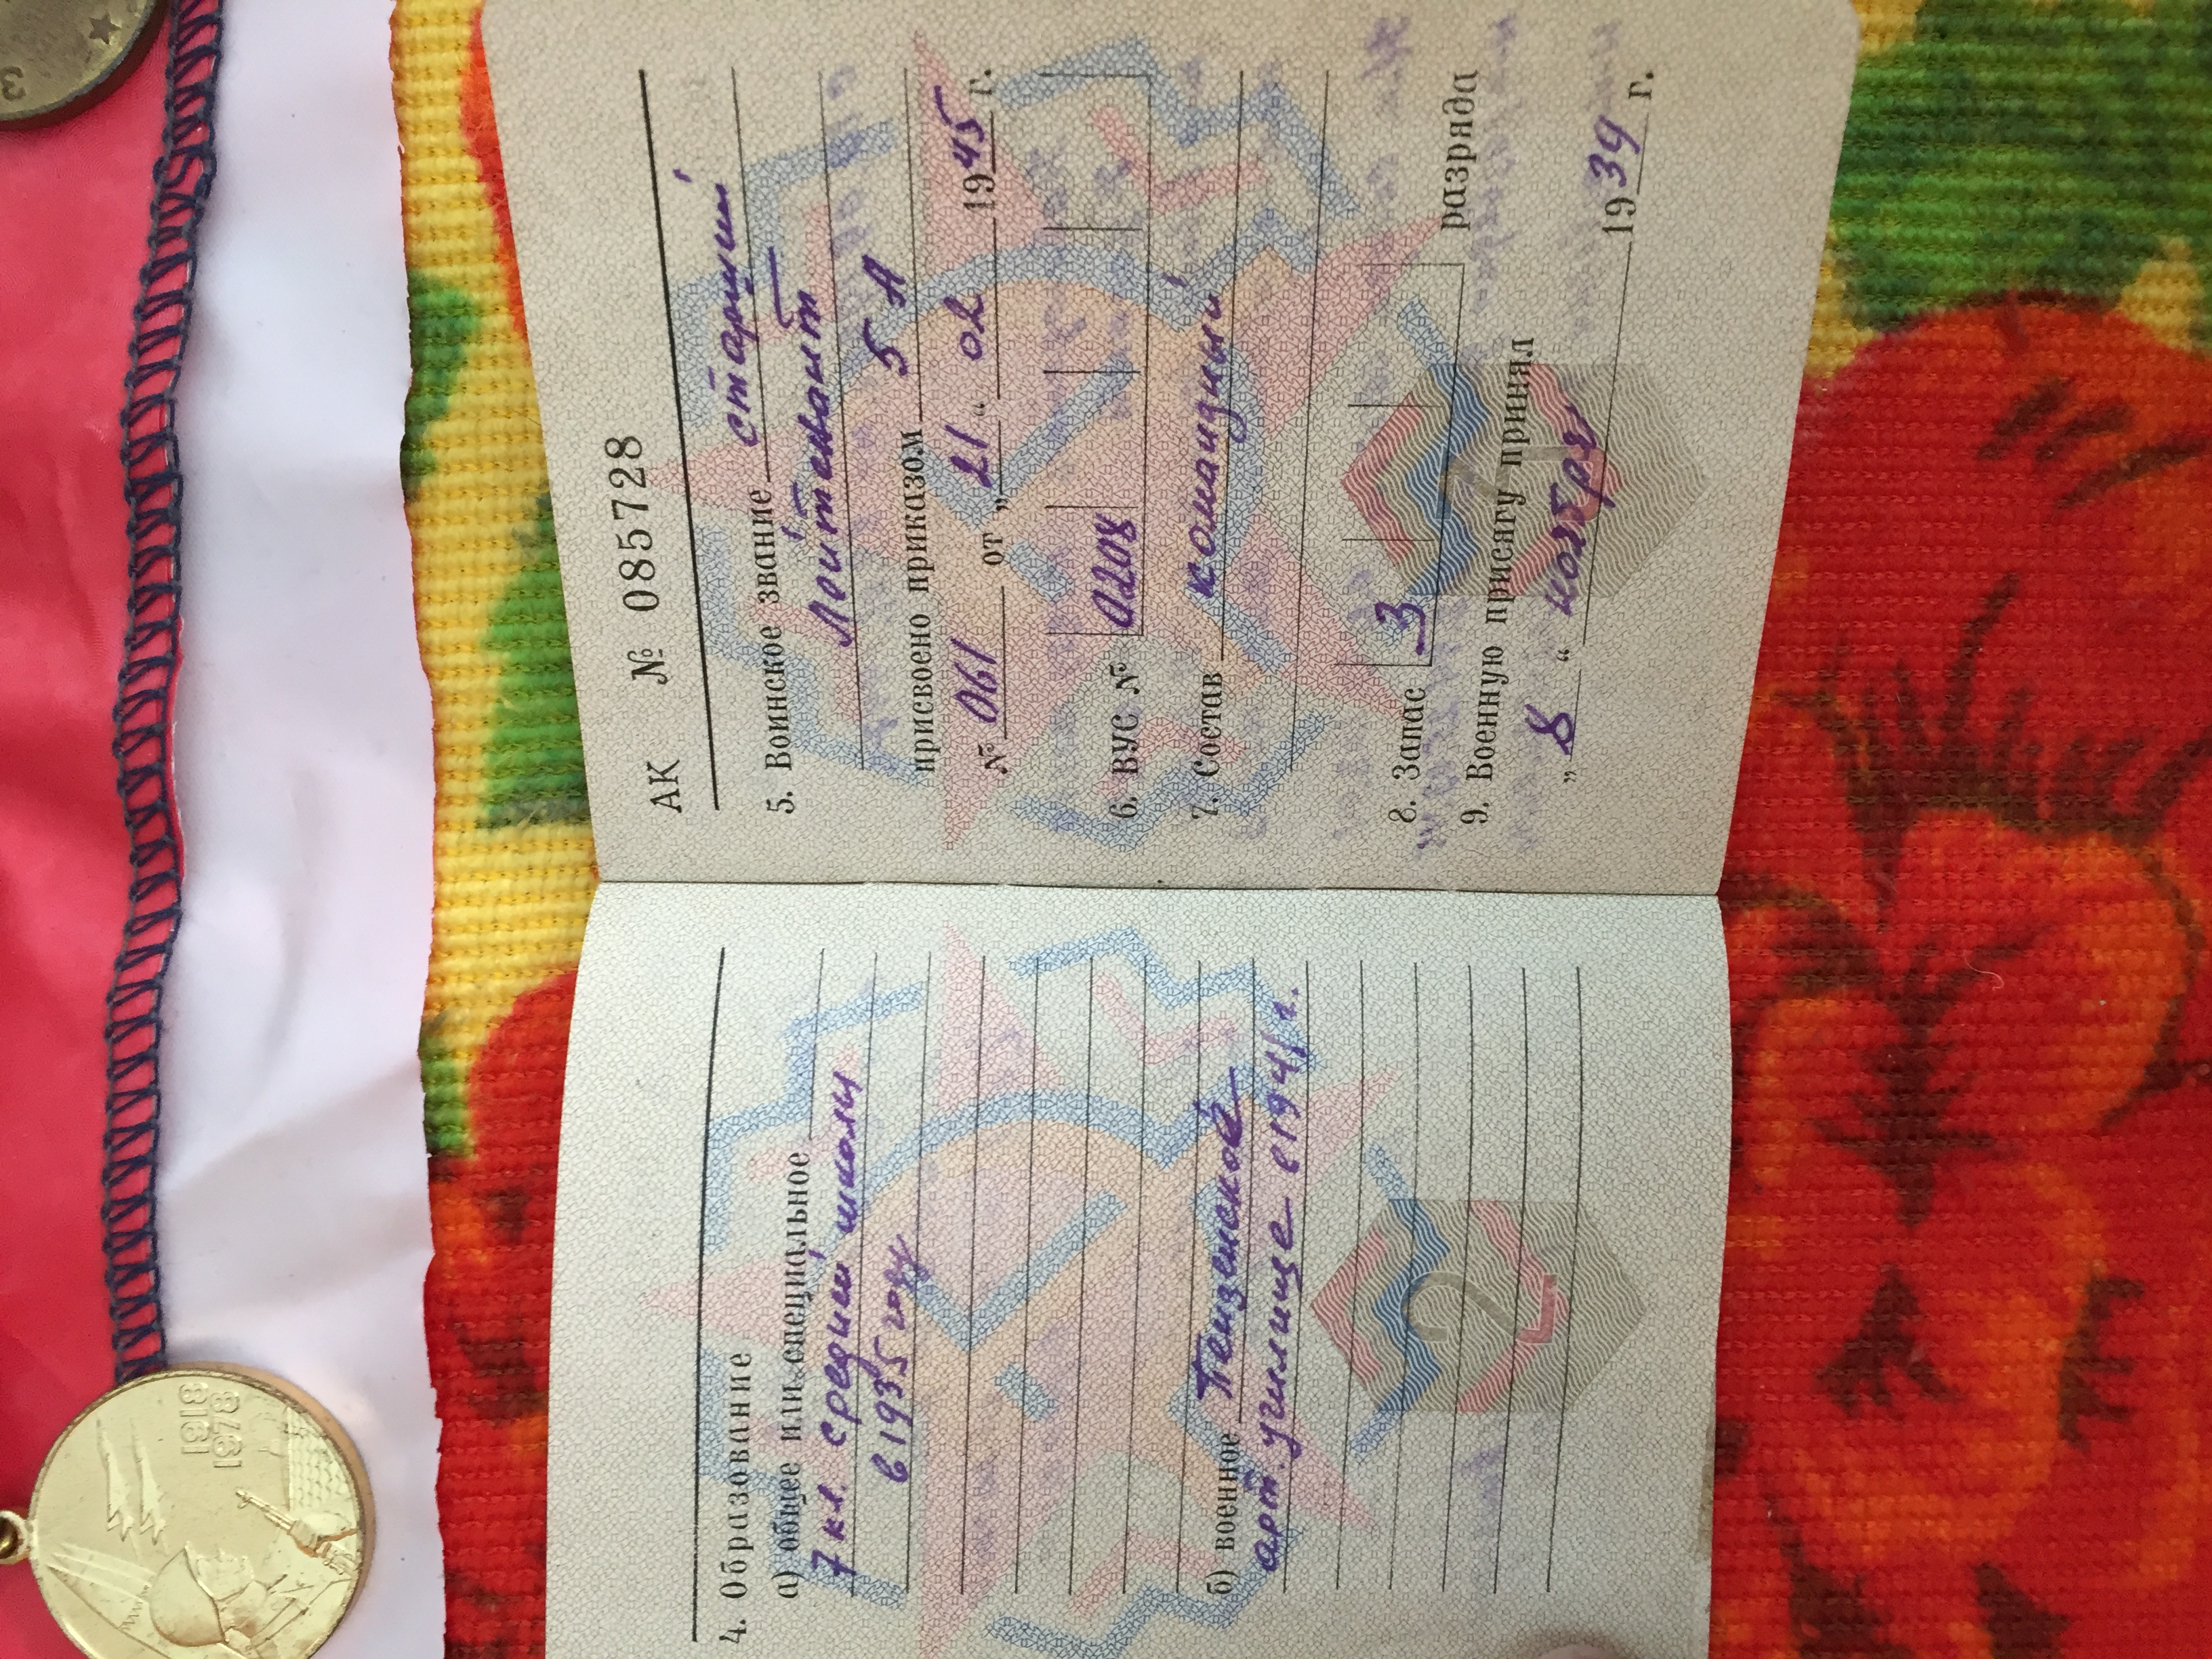 4. Образование
а) общее или специальное
7 кл. средний школы
в 1935 году
б) военное Пензенское
арт. училище в 1941 г.
2
АК № 085728
5. Воинское звание старший
лейтенант
присвоено приказом 5 А
№ 061 от „21“ 02 1945 г.
6. ВУС № 02 04
7. Состав командный
8. Запас 3 разряда
9. Военную присягу принял
„8“ ноября 1939 г.
1918
1978
3